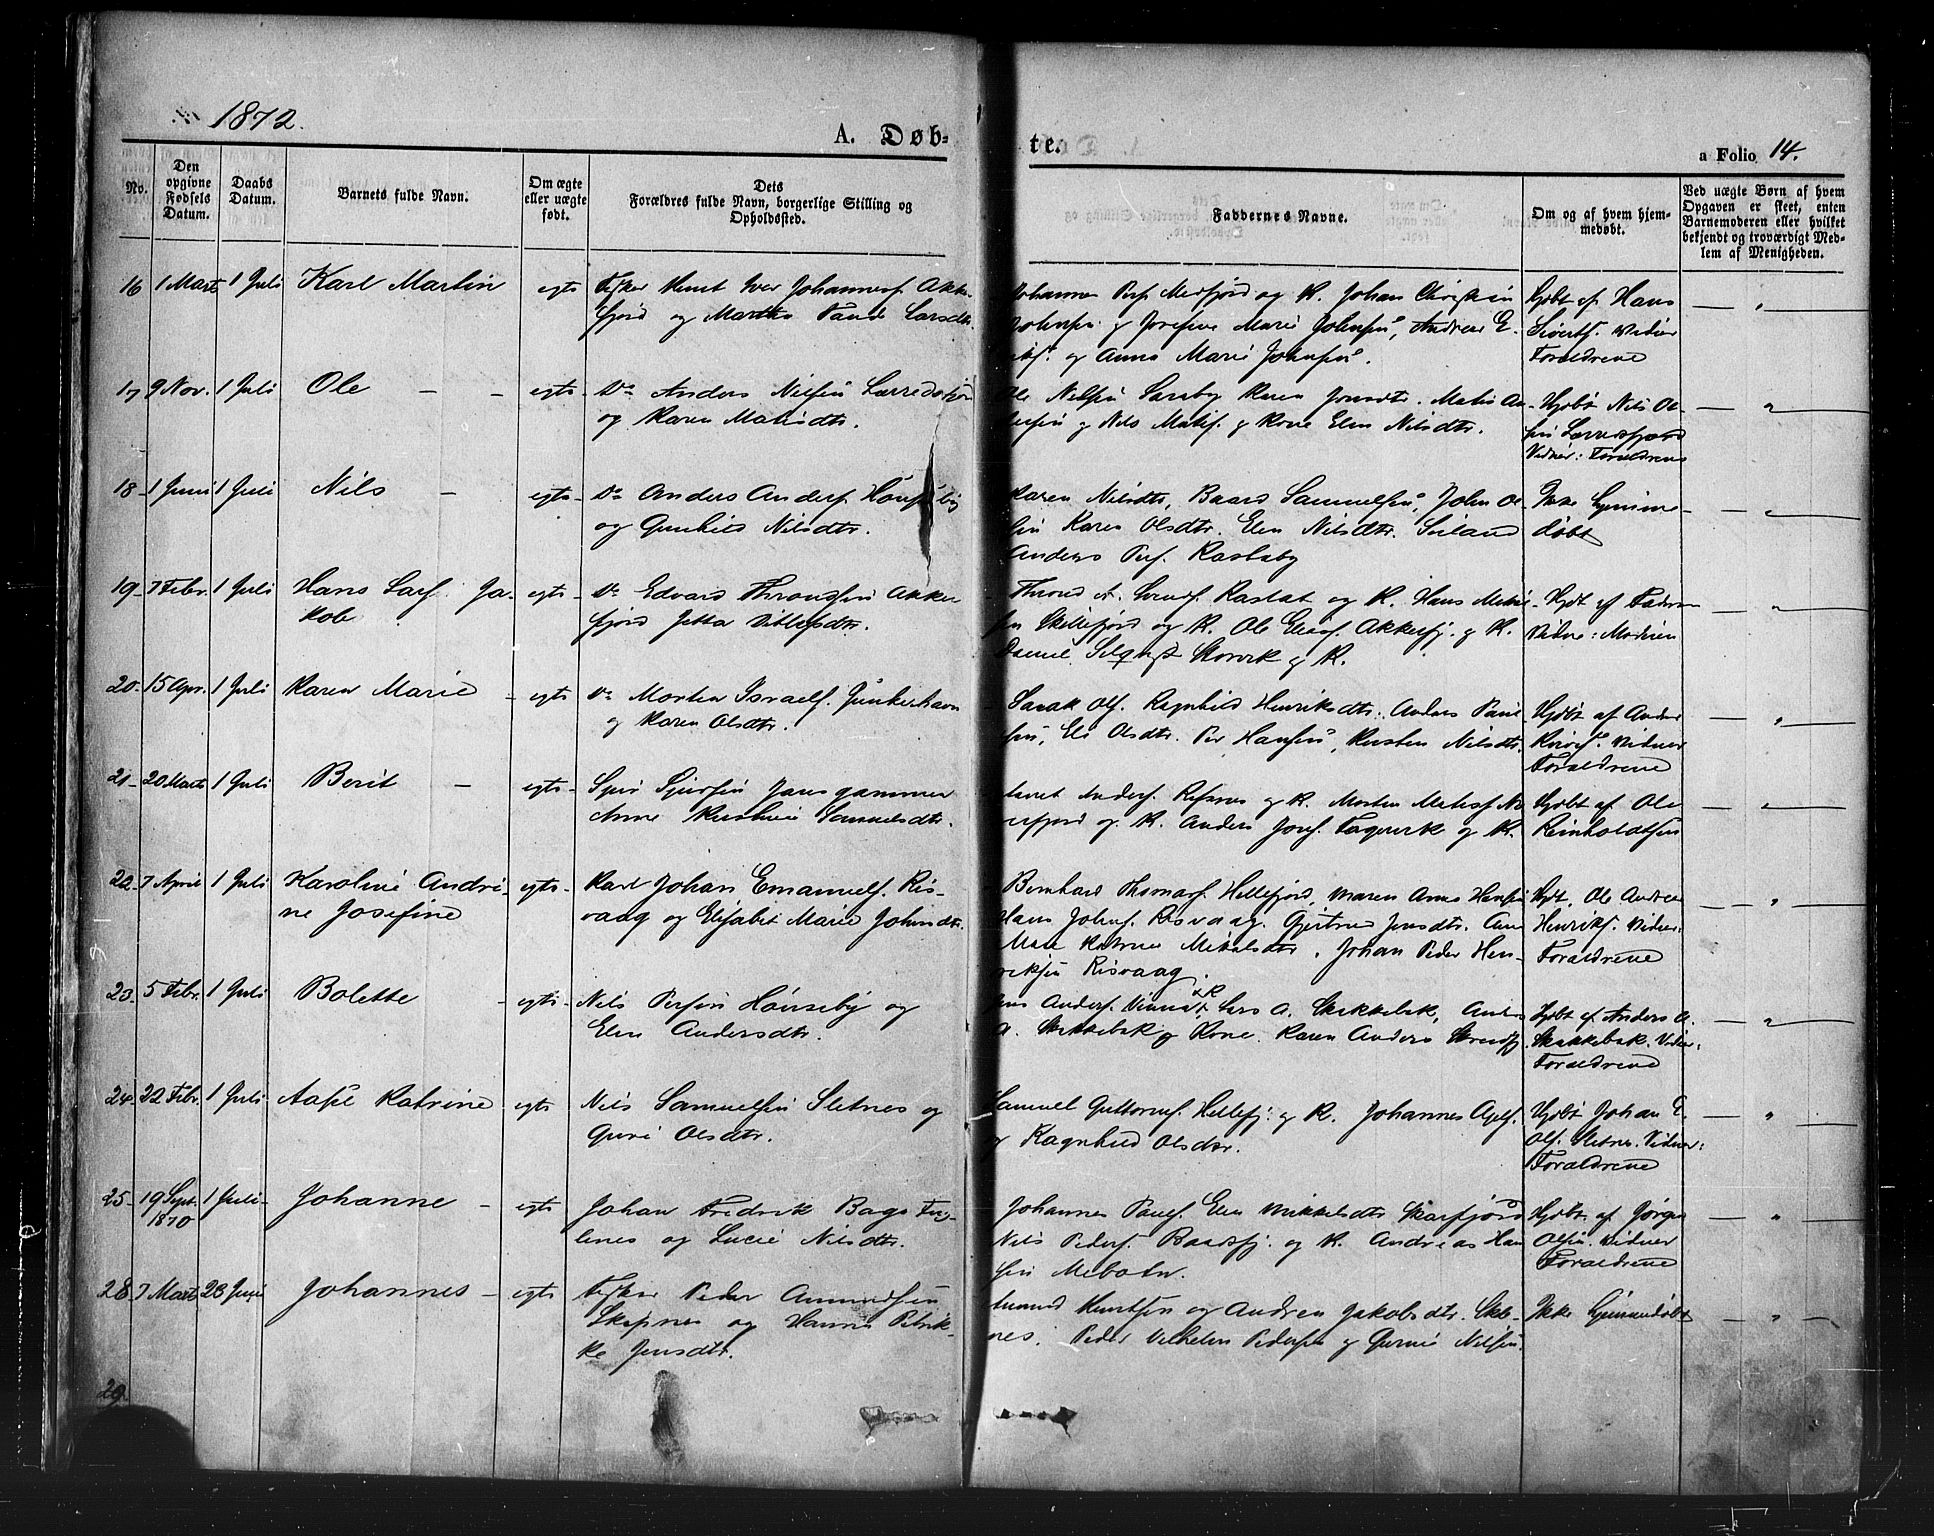 1872.
A. Døb-
te.
a Folio 14.
No.
Den opgivne Fødsels Datum.
Daabs Datum.
Barnets fulde Navn.
Om ægte eller uægte født.
Dets Forældres fulde Navn, borgerlige Stilling og Opholdssted.
Faddernes Navne.
Om og af hvem hjem-
medøbt.
Ved uægte Børn af hvem
Opgaven er skeet, enten
Barnemoderen eller hvilket
bekjendt og troværdigt Med-
lem af Menigheden.
16 1 Marts 1 Juli Karl Martin egte Fisker Iver Johannesf. Akke-
fjord og Martha Larsdtr.
Johannes Persf. Mefjord og K. Johan Christian
Johnsen og Josefine Marie Johnsen, Andreas E.
og Anna Marie Johnsen.
Hjdbt af Hans
Sivertsf. Vidner
Forældrene
17 9 Nov. 1 Juli Ole - - egte Do Anders Nilsen Lerredsfjor
og Karen Matisdtr.
Ole Nilsen Saraby Karen Jonsdtr. Matis An-
dersen og Nils Matisf. og Kone Elen Nilsdtr.
Hjdbt Nils Ol-
sen Lerredsfjord
Vidner: Forældrene
18 1 Juni 1 Juli Nils - egte Do Anders Andersf. Hønseby
og Gunhild Nilsdtr.
Karen Nilsdtr, Baard Samuelsen, John Ol-
sen Karen Olsdtr. Elen Nilsdtr. Seiland
Anders Persf. Rastaby
Ikke hjemme-
døbt
19 7 Febr. 1 Juli Hans Larf. Ja-
kob egte Do Edvard Thronsen Akke
fjord Jetta Ditlefsdtr.
Thrond A. Rastab og K. Hans
Skillefjord og K. Ole Akkerfj. og K.
Daniel Korsvik og K.
Hjdt af Faderen
Vidne: Moderen
20 15 Apr. 1 Juli Karen Marie - egte Do Morten Israelf. Jünkerhavn
og Karen Olsdtr.
Sarak Olf. Ragnhild Henriksdtr. Anders Paul
sen, Eli Olsdtr. Per Hansen, Kirsten Nilsdtr.
Hjdbt af Anders
Vidner
Forældrene
21 20 Marts 1 Juli Berit - egte Sjur Sjursen Jansgammer
Anne Kirstine Samuelsdtr.
Andersf. Refsnes og K. Morten Matisf.
fjord og K. Anders Josef. Fægevik og K.
Hjdbt af Ole
Reinholdtsen
22 7 April 1 Juli Karoline Andri-
ne Josefine egte Karl Johan Emanuelf. Ris-
vaag og Elisabet Marie Johnsdtr.
Bernhard Thomasf. Hellefjord, Maren Anna Hansen
Hans Johnsf. Risvaag. Gjertrud Jensdtr. Ane
Katrine Mikalsdtr. Johan Peder Hen-
riksen Risvaag.
Hjdt. Ole Andreas
Henriksf. Vidner:
Forældrene
23 5 Febr. 1 Juli Bolette - egte Nils Persen Hønseby og
Elen Andersdtr.
Andersf. Lars A. Skakkebak, Anders
A. Skakkebak og Kone. Karen Anders
Hjdbt af Anders A.
Skakkebak. Vidner:
Forældrene
24 22 Febr. 1 Juli Aase Katrine egte Nils Samuelsen Sletnes og
Guri Olsdtr.
Samuel Guttormf. Hellefj. og K. Johannes
og Ragnhild Olsdtr.
Hjdbt Johan E.
Olf. Sletnes. Vidner:
Forældrene
25 19 Sept. 1870 1 Juli Johanne - egte Johan Fredrik Bagø Fug-
lenes og Lucie Nilsdtr.
Johannes Paulsf. Elen Mikkelsdtr Skarfjord
Nils Pedersf. Baadsfj. og K. Andreas Han
sen Mebotn.
Hjdbt af Jørgen
Olsen. Vidner
Forældrene
28 7 Marts 23 Juni Johannes - egte Fisker Peder Amundsen
Skipnes og Hanna Petrik-
ke Jensdtr.
Amund Knutsen og Andrea Jakobsdtr. Skip-
nes. Peder Vilhelm Pedersen og Nilsen.
Ikke hjemmedøbt
29.